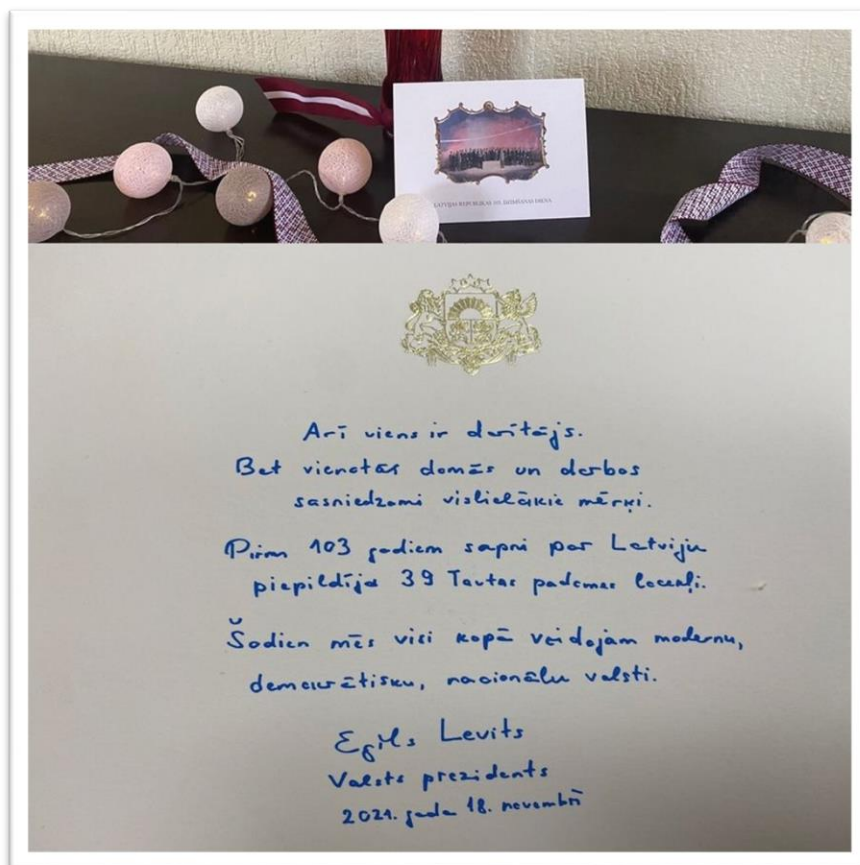 LATVIJAS REPUBLIKAS 103. DZIMŠANAS DIENA
Arī viens ir darītājs.
Bet vienotās domās un darbos
sasniedzami vislielākie mērķi.
Pirms 103 gadiem sapni par Latviju
piepildīja 39 Tautas padomes locekļi.
Šodien mēs visi kopā veidojam modernu,
demokrātisku, nacionālu valsti.
Egils Levits
Valsts prezidents
2021. gada 18. novembrī